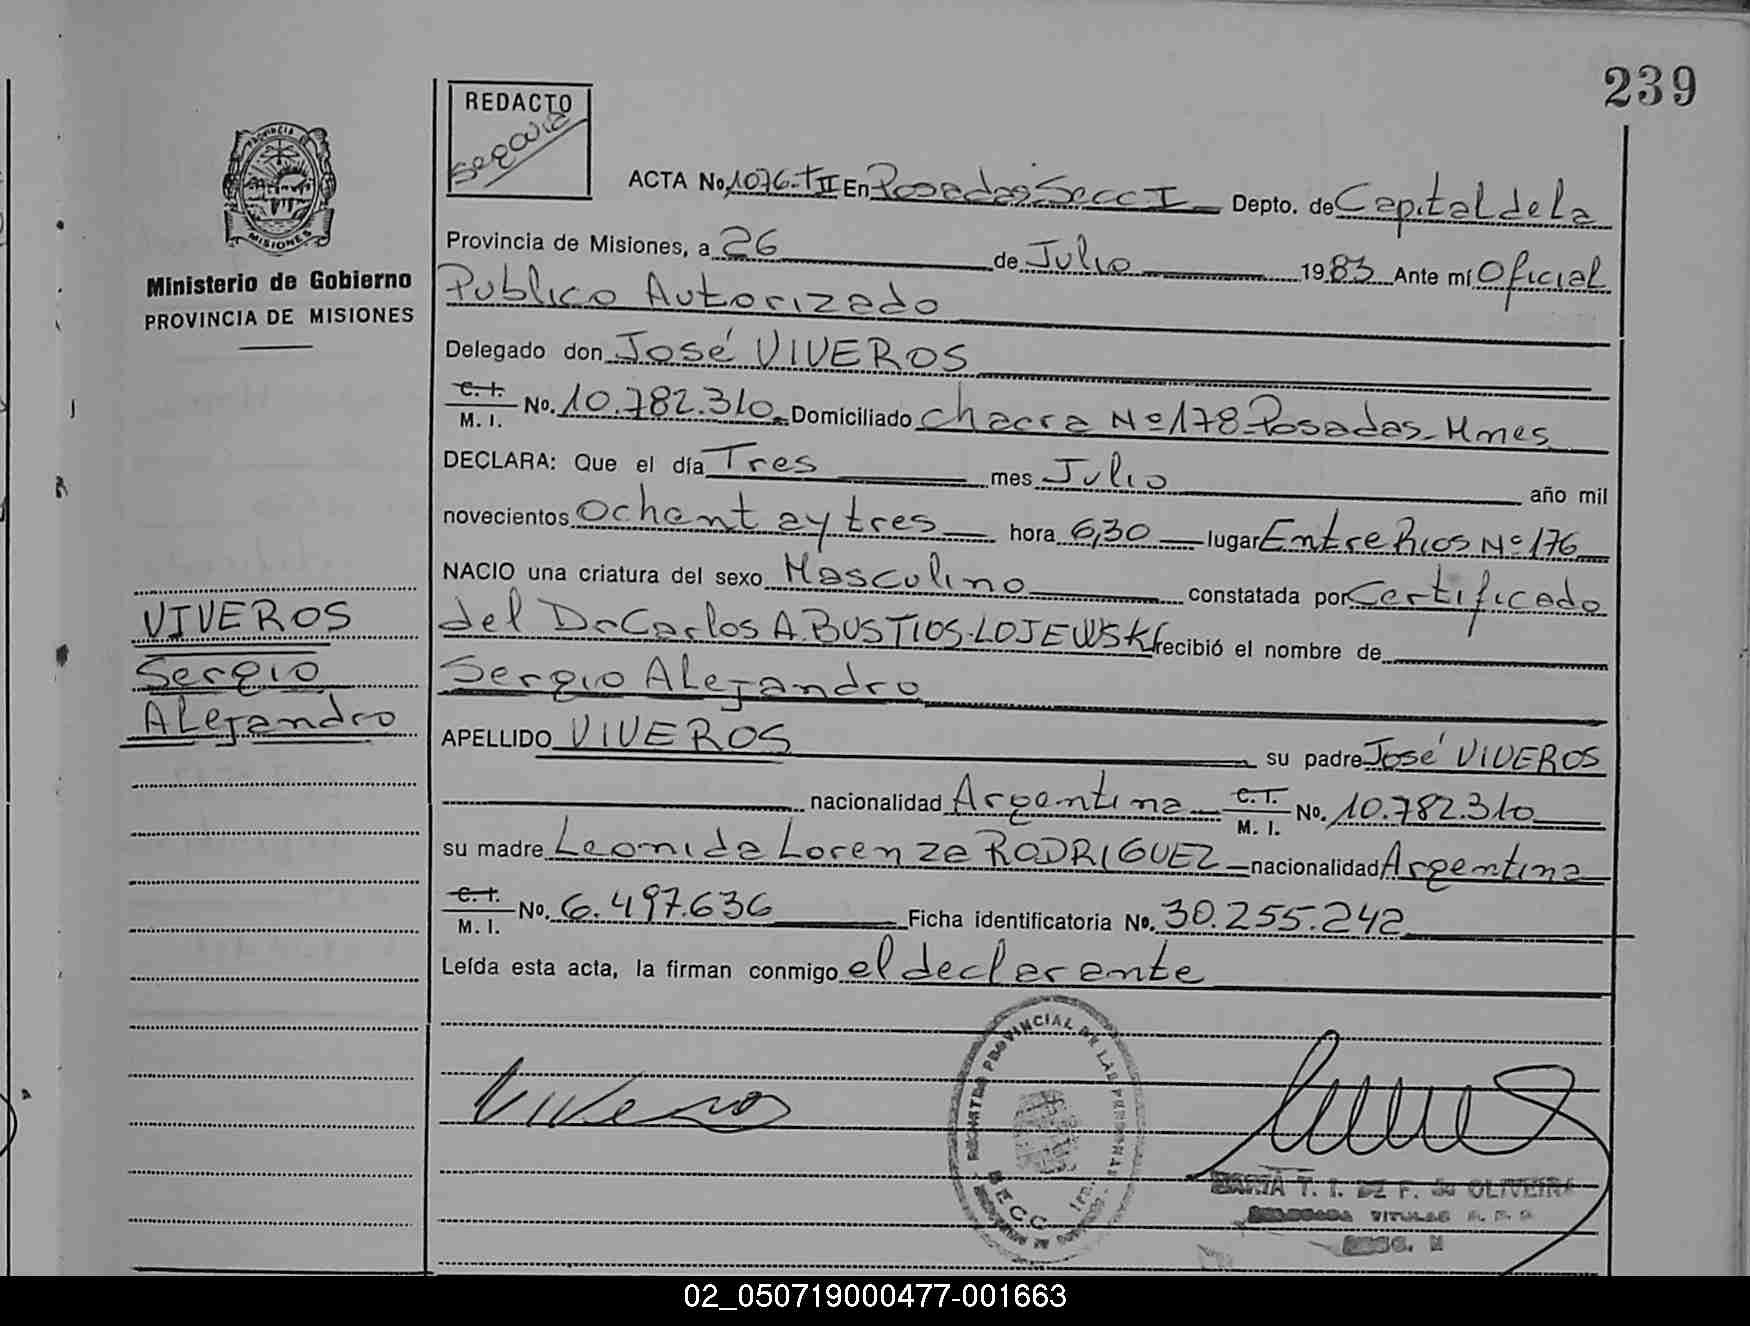 239
REDACTO
Segovia
PROVINCIA DE
MISIONES
Ministerio de Gobierno
PROVINCIA DE MISIONES
VIVEROS
Sergio
Alejandro
ACTA No. 1076-TII En Posadas Secc I Depto. de Capital de la
Provincia de Misiones, a 26 de Julio 1983 Ante mí Oficial
Publico Autorizado
Delegado don José VIVEROS
C. I. M. I. No. 10.782.310 Domiciliado Chacra Nº 178-Posadas-Mnes
DECLARA: Que el día Tres mes Julio año mil
novecientos ochent ay tres hora 6,30 lugar Entre Rios Nº 176
NACIO una criatura del sexo Masculino constatada por Certificado
del Dr Carlos A. BUSTIOS-LOJEWSKI recibió el nombre de
Sergio Alejandro
APELLIDO VIVEROS su padre José VIVEROS
nacionalidad Argentina C. I. M. I. No. 10.782.310
su madre Leonida Lorenza RODRIGUEZ nacionalidad Argentina
C. I. M. I. No. 6.497.636 Ficha identificatoria No. 30.255.242
Leída esta acta, la firman conmigo el declarante
Viveros
PROVINCIAL DE LAS PERSONAS
SECC
T. I. DE F. de OLIVEIRA
TITULAR
02_050719000477-001663